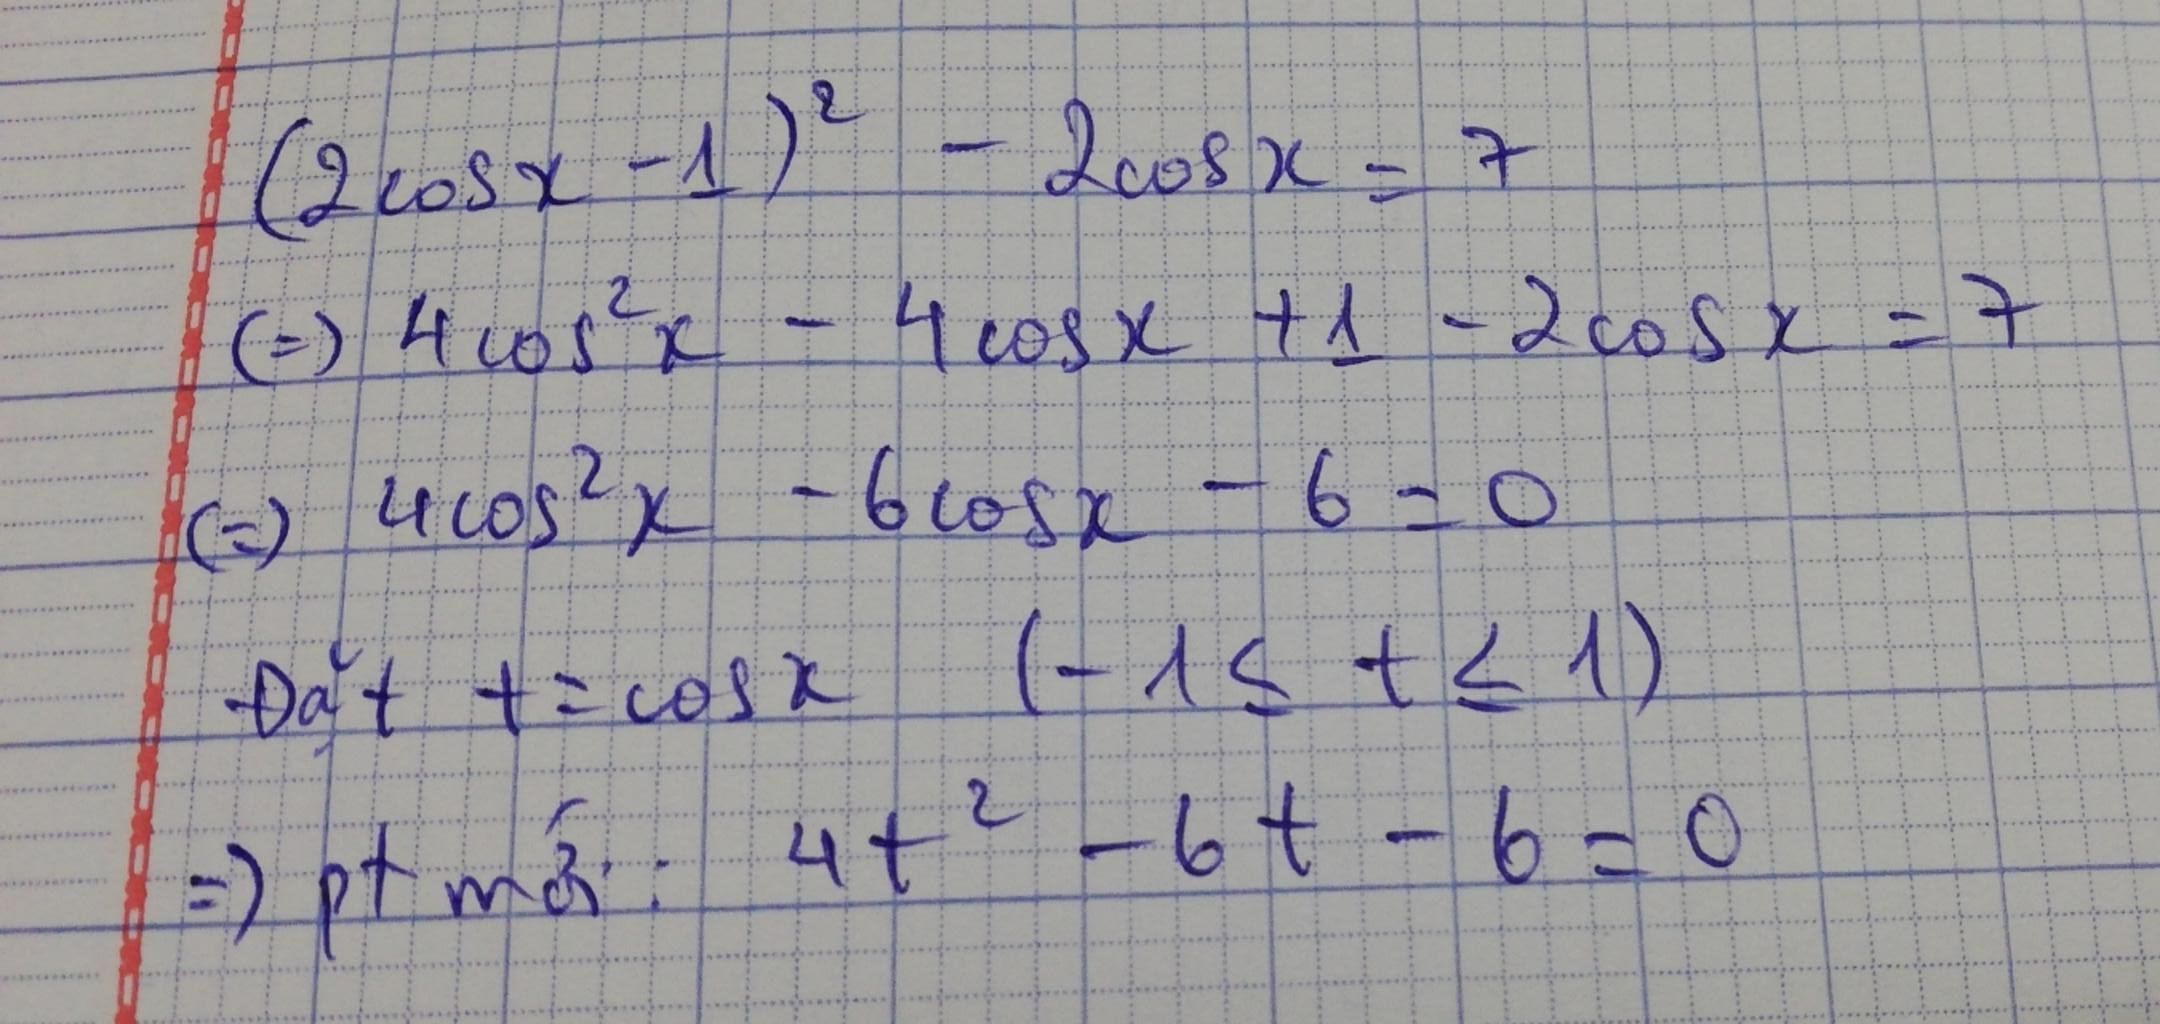 (2cosx - 1)² - 2cosx = 7
(=) 4cos²x - 4cosx + 1 - 2cosx = 7
(=) 4cos²x - 6cosx - 6 = 0
Đặt t = cosx (-1 ≤ t ≤ 1)
=) pt mới: 4t² - 6t - 6 = 0